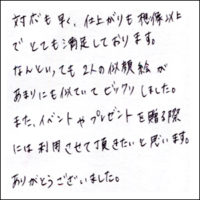 対応も早く、仕上がりも想像以上
でとても満足しております。
なんといっても2人の似顔絵が
あまりにも似ていてビックリしました。
また、イベントやプレゼントを贈る際
には利用させて頂きたいと思います。
ありがとうございました。